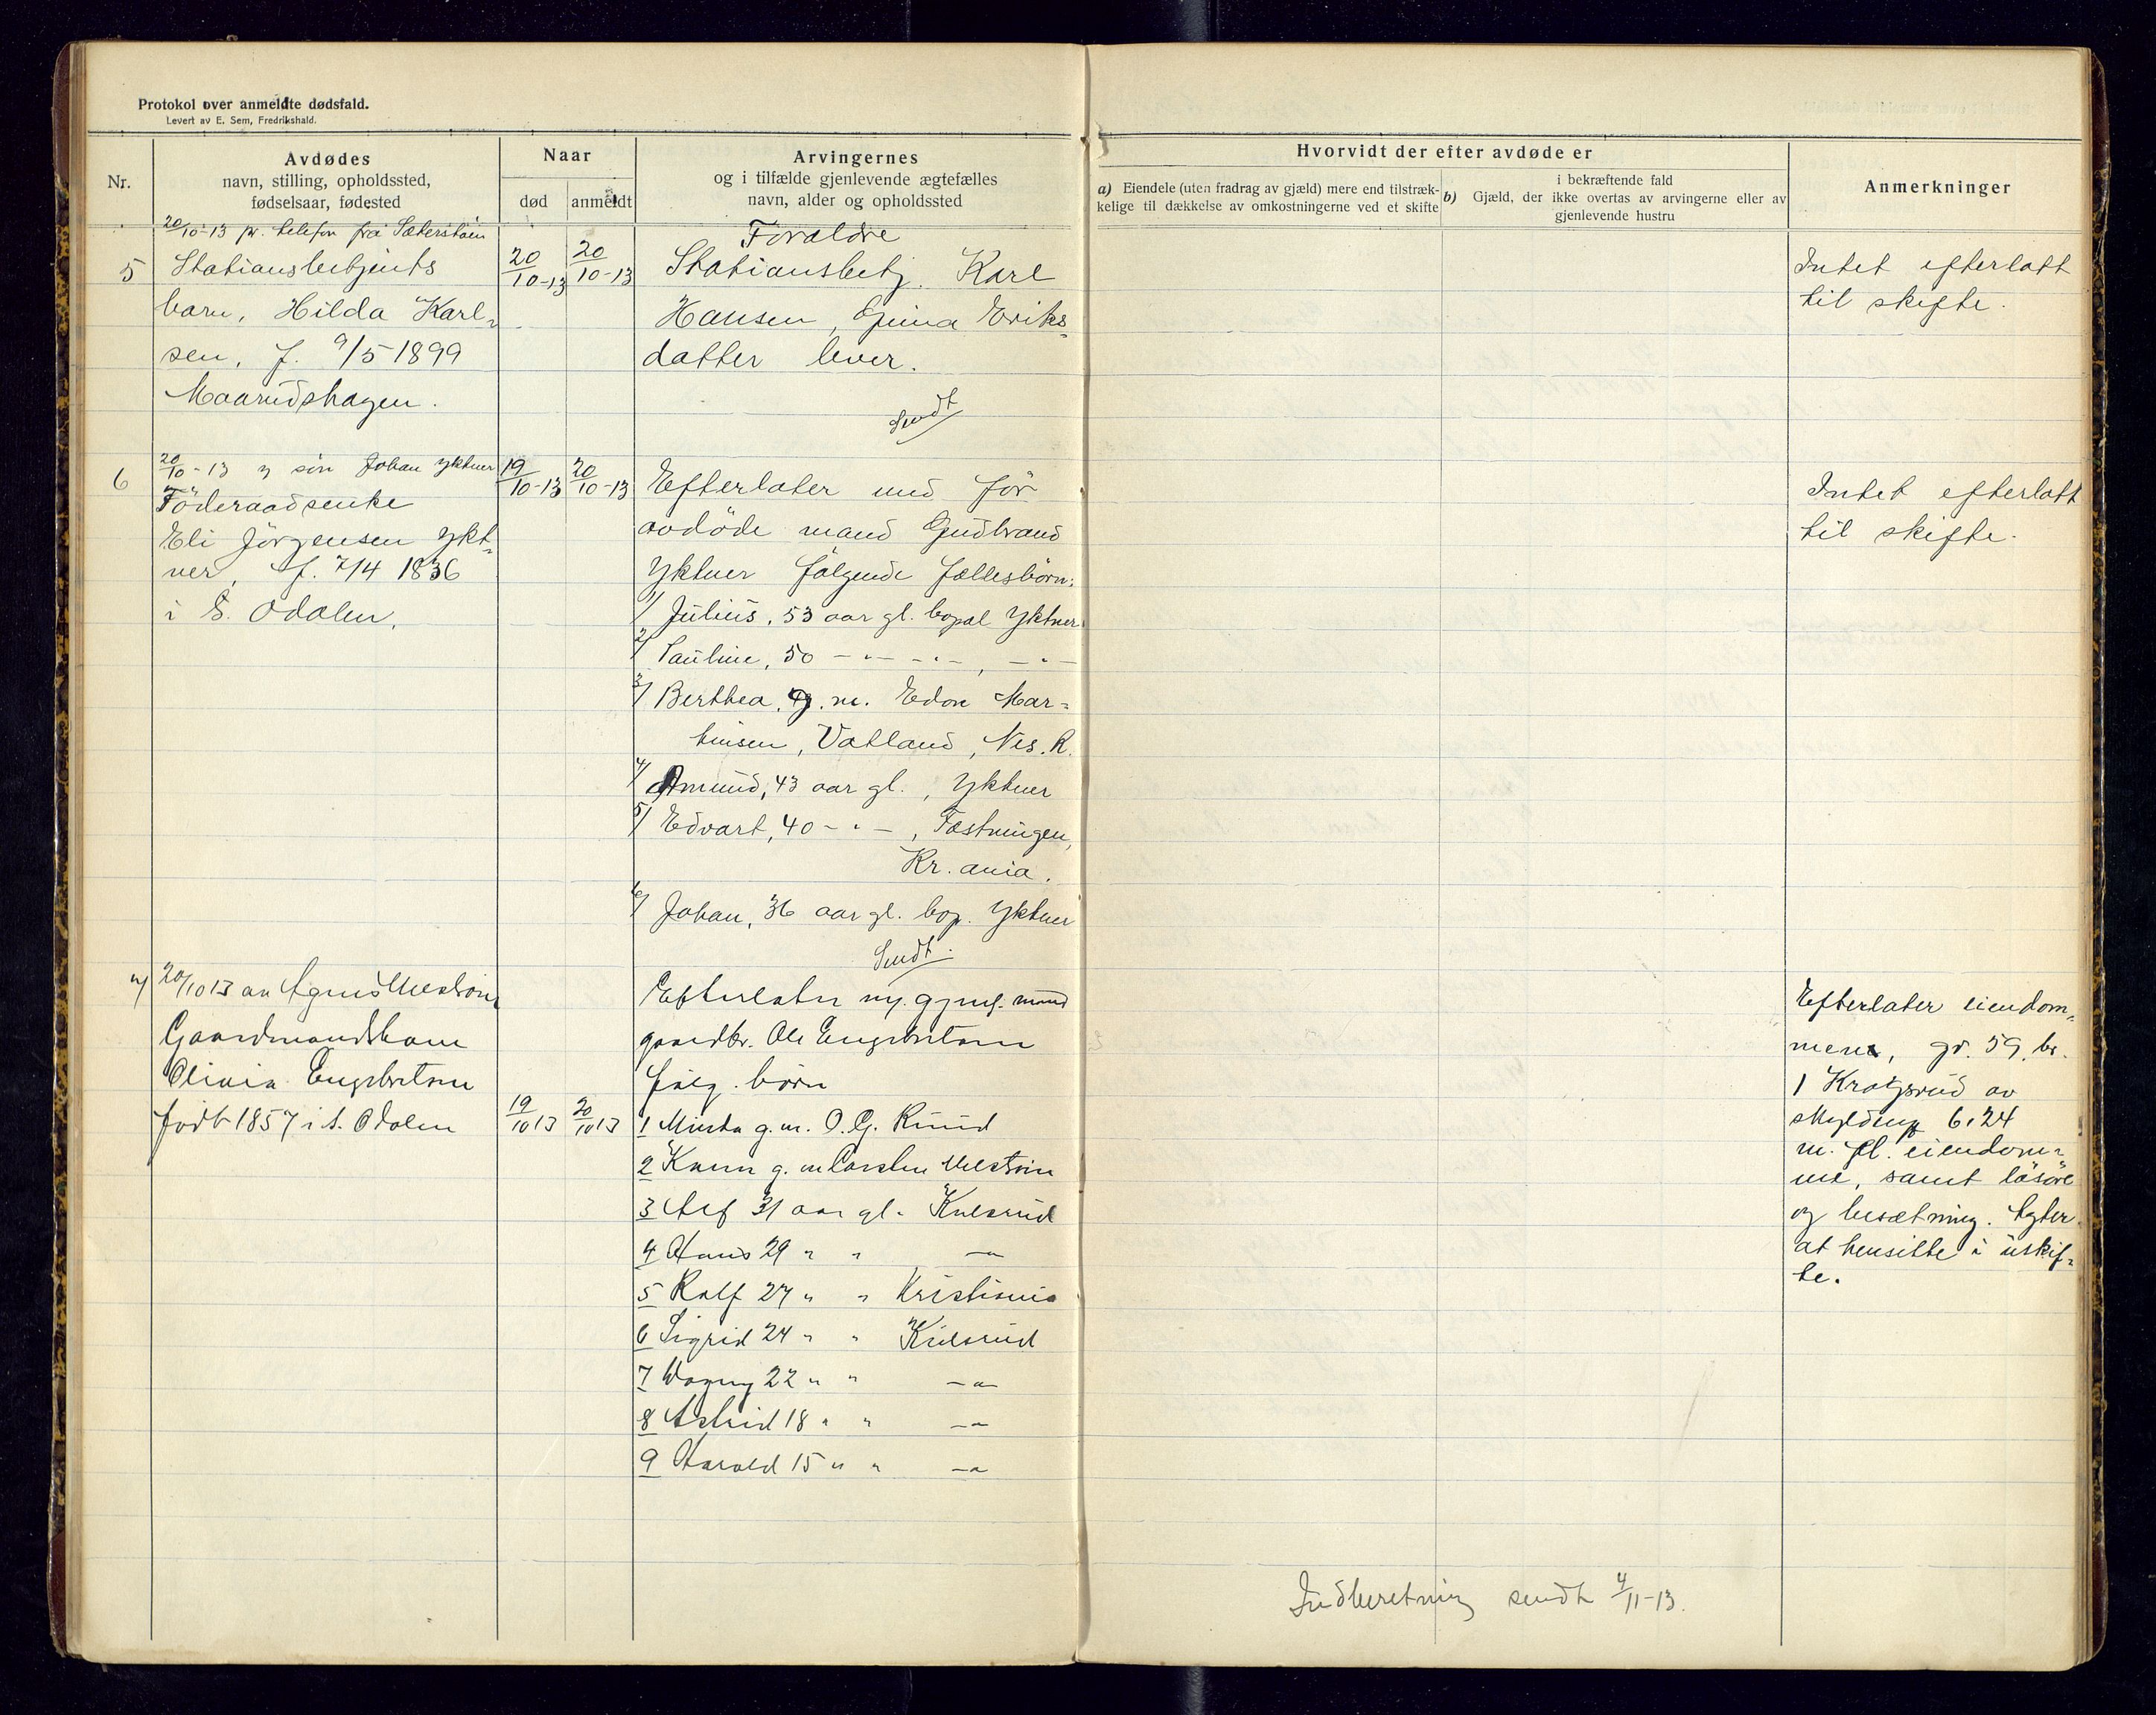 Protokol over anmeldte dødsfald.
Levert av E. Sem, Fredrikshald.
Nr.
Avdødes
navn, stilling, opholdssted,
fødselsaar, fødested
Naar
død
anmeldt
Arvingernes
og i tilfælde gjenlevende ægtefælles
navn, alder og opholdssted
Hvorvidt der efter avdøde er
a) Eiendele (uten fradrag av gjæld) mere end tilstræk-
kelige til dækkelse av omkostningerne ved et skifte
i bekræftende fald
b) Gjæld, der ikke overtas av arvingerne eller av
gjenlevende hustru
Anmerkninger
20/10-13 pr. telefon fra Sæterstøen
5
Stationsbetjents
barn, Hilda Karl-
sen, f. 9/5 1899
Maarudshagen.
20/10-13
20/10-13
Forældre
Stationsbetj. Karl
Hansen, Gina Eriks-
datter lever.
Sendt
Intet efterlatt
til skifte.
6
20/10-13 søn Johan Yktner
Föderaadsenke
Eli Jörgensen Ykt-
ner, f. 7/4 1836
i S. Odalen.
19/10-13
20/10-13
Efterlater med för
avdöde mand Gudbrand
Yktner følgende fællesbörn:
1/ Julius, 53 aar gl. bopæl Yktner
2/ Pauline, 50 - " - - " - , - " -
3/ Berthea, g. m. Edon Mar-
tinsen, Vatland, Nes. R.
4/ Amund, 43 aar gl., Yktner
5/ Edvart, 40 - " - , Fæstningen,
Kr. ania.
6/ Johan, 36 aar gl. bop. Yktner
Sendt.
Intet efterlatt
til skifte.
7/
20/10 13 av Agnes
Gaardmandskone
Olivia Engebretsen
født 1857 i S. Odalen
19/10 13
20/10 13
Efterlater gjenl. mand
gaardbr. Ole Engebretsen
følg. børn
1 g. m. O. G. Ruud
2 Karen g. m Carsten
3 Alf 31 aar gl. Kulsrud
4 Hans 29 " " - " -
5 Rolf 27 " " Kristiania
6 Sigrid 24 " " Kulsrud
7 Dagny 22 " " - " -
8 Astrid 18 " " - " -
9 Harald 15 " " - " -
Efterlater eiendom-
mene, gr. 59, br.
1 av
skyldmk 6,24
m. fl. eiendom-
me, samt løsøre
og besætning. Agter
at hensitte i uskif-
te.
Indberetning sendt 4/11-13.